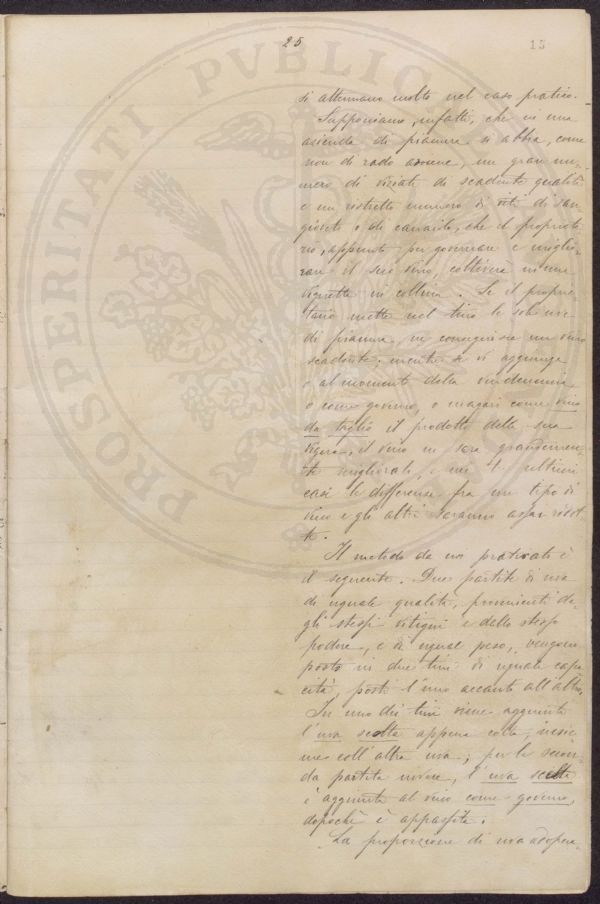 25
15
si attenuano molto nel caso pratico.
Supponiamo, infatti, che in una
azienda di pianura si abbia, come
non di rado avviene, un gran nu-
mero di viziati di scadente qualità
e un ristretto numero di viti di san-
gioveto o di canaiolo, che il proprieta
rio, appunto per governare e miglio-
rare il suo vino, coltiverà in una
vignetta in collina. Se il proprie-
tario mette nel tino le sole uve
di pianura, ne conseguirà un vino
scadente; mentre se vi aggiunge
o al momento della vendemmia,
o come governo, o magari come vino
da taglio il prodotto della sua
vigna, il vino ne sarà grandemen-
te migliorato, e nei ultimi
casi le differenze fra un tipo di
vino e gli altri saranno assai ridot
te.
Il metodo da noi praticato è
il seguente. Due partite di uva
di uguale qualità, provenienti da-
gli stessi vitigni e dallo stesso
podere, e di egual peso, vengono
poste in due tini di uguale capa
cità, posti l'uno accanto all'altro.
In uno dei tini viene aggiunta
l'uva scelta appena colta, insie-
me coll'altra uva; per la secon-
da partita invece, l'uva scelta
è aggiunta al vino come governo,
dopochè è appassita.
La proporzione di uva adopera-
PROSPERITATI PVBLICAE